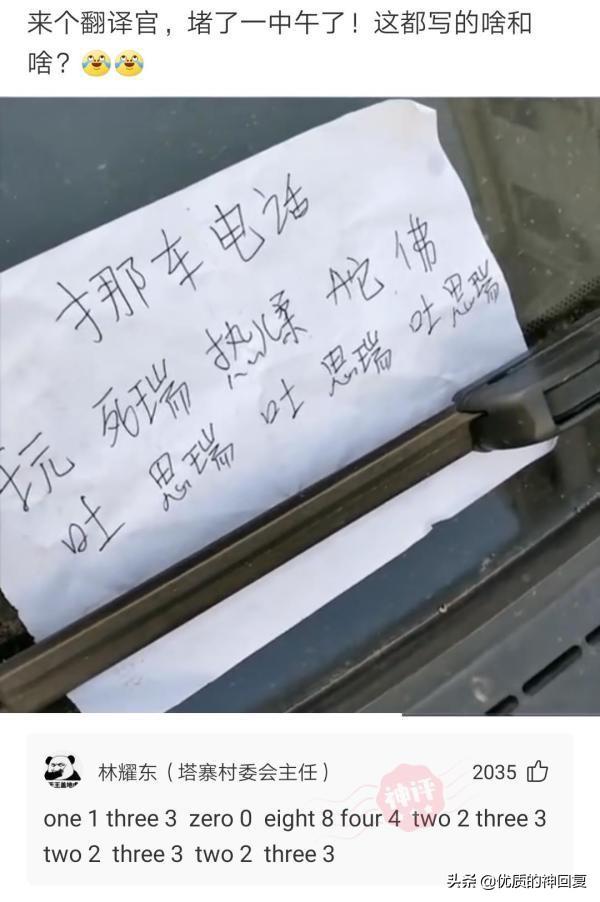 来个翻译官，堵了一中午了！这都写的啥和
啥？😂😂
挪车电话
玩 死瑞 热柔 A它 佛
吐 思瑞 吐 思瑞 吐思瑞
林耀东（塔寨村委会主任）
2035
神评
one 1 three 3 zero 0 eight 8 four 4 two 2 three 3
two 2 three 3 two 2 three 3
头条 @优质的神回复